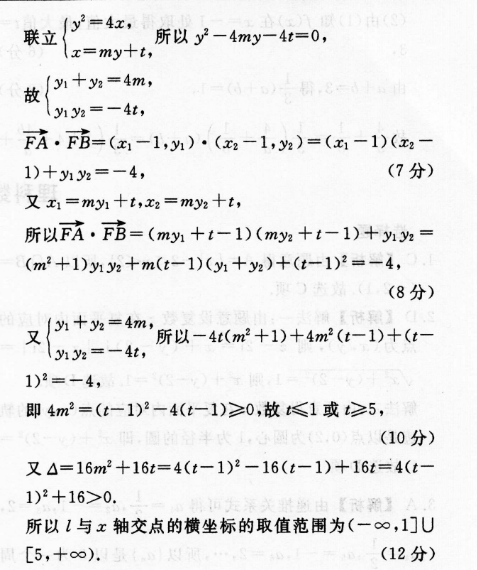 联立{y²=4x, 所以 y²-4my-4t=0,
x=my+t,
故{y₁+y₂=4m,
y₁y₂=-4t,
FA·FB=(x₁-1,y₁)·(x₂-1,y₂)=(x₁-1)(x₂-
1)+y₁y₂=-4, (7分)
又 x₁=my₁+t,x₂=my₂+t,
所以FA·FB=(my₁+t-1)(my₂+t-1)+y₁y₂=
(m²+1)y₁y₂+m(t-1)(y₁+y₂)+(t-1)²=-4,
(8分)
又{y₁+y₂=4m, 所以-4t(m²+1)+4m²(t-1)+(t-
y₁y₂=-4t,
1)²=-4,
即 4m²=(t-1)²-4(t-1)≥0,故 t≤1 或 t≥5,
(10分)
又 Δ=16m²+16t=4(t-1)²-16(t-1)+16t=4(t-
1)²+16>0.
所以 l 与 x 轴交点的横坐标的取值范围为(-∞,1]∪
[5,+∞). (12分)